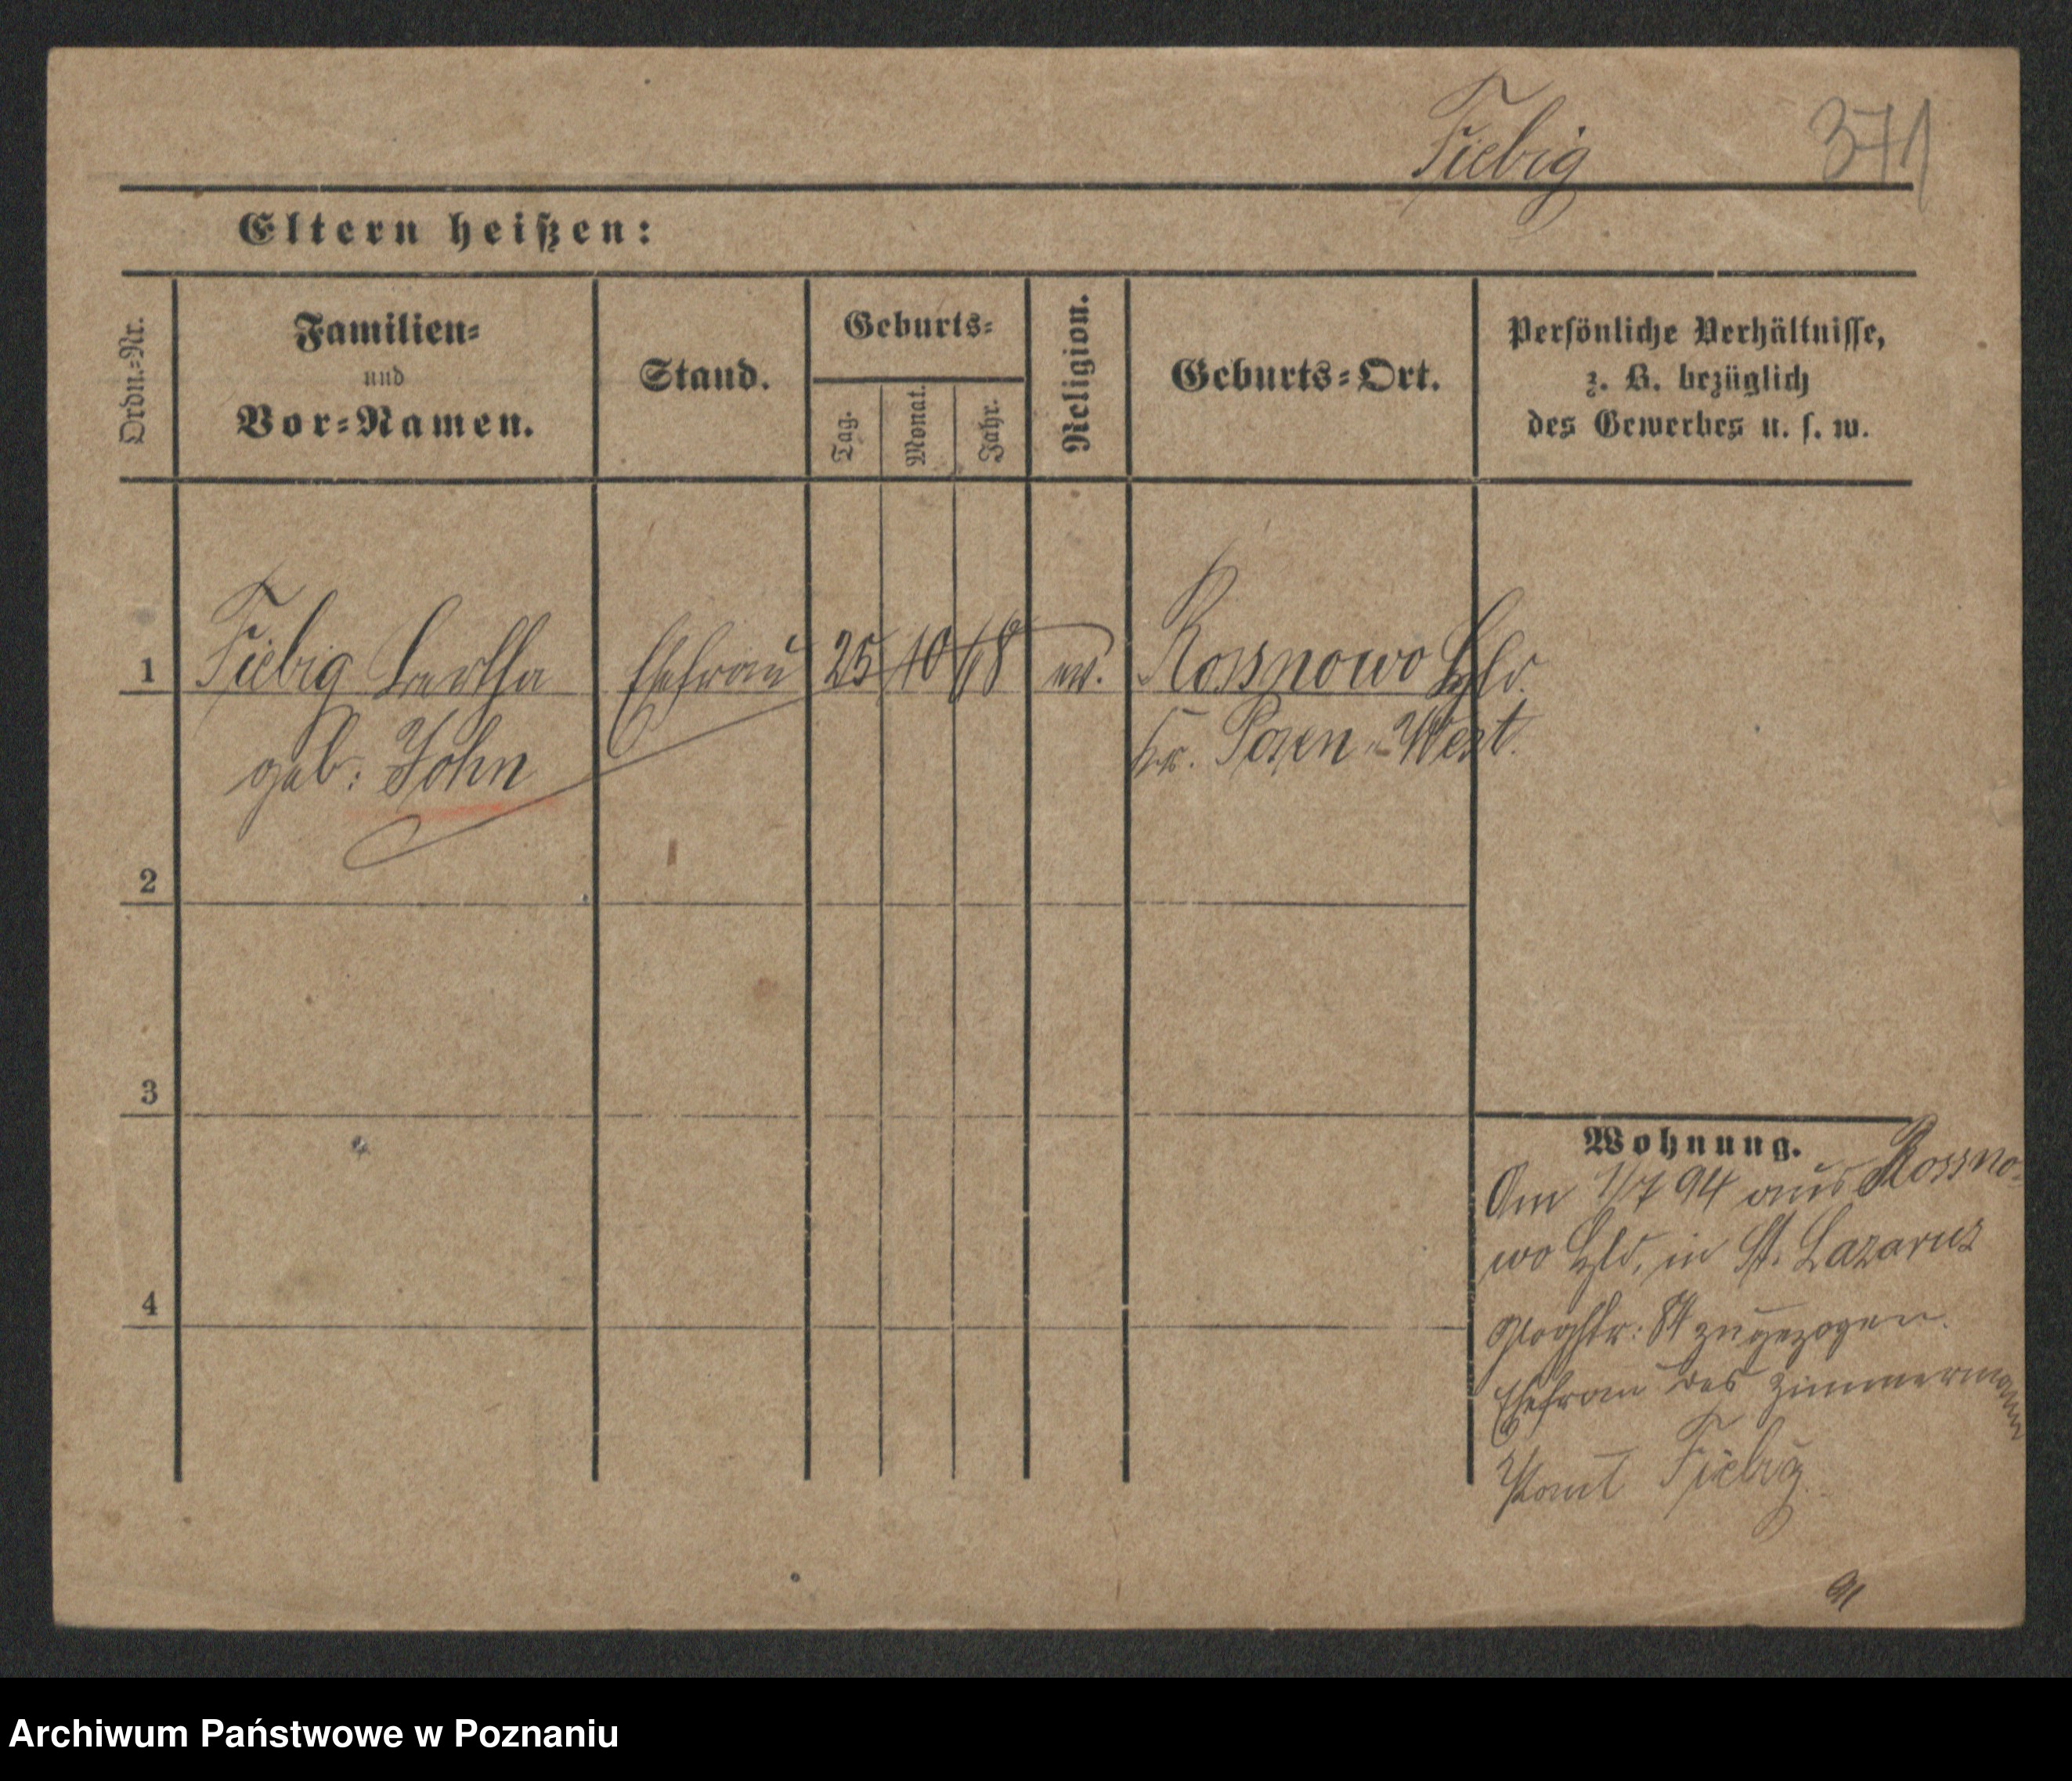 Fiebig 371
Eltern heißen:
Ordn.-Nr.
Familien-
und
Vor-Namen.
Stand.
Geburts-
Tag.
Monat.
Jahr.
Religion.
Geburts-Ort.
Persönliche Verhältnisse,
z. B. bezüglich
des Gewerbes u. s. w.
1 Fiebig Bertha Ehefrau 25 10 68 ev. Rossnowo Hld.
geb: John Kr. Posen-West.
2
3
4
Wohnung.
Am 1/7 94 aus Rossno-
wo Hld, in St. Lazarus
Glogstr: 84 zugezogen.
Ehefrau des Zimmermann
Paul Fiebig
Archiwum Państwowe w Poznaniu